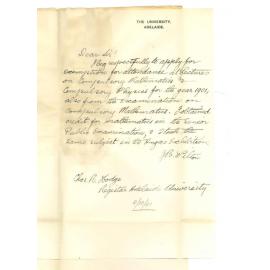 THE UNIVERSITY,
ADELAIDE.
Dear Sir
I beg respectfully to apply for
exemption for attendance at lectures
on Compulsory Mathematics &
Compulsory Physics for the year 1901,
also from the examination on
Compulsory Mathematics. I obtained
credit for mathematics in the Senior
Public Examination, & took the
same subject in the Angas Exhibition
Chas R. Hodge
Registrar Adelaide University